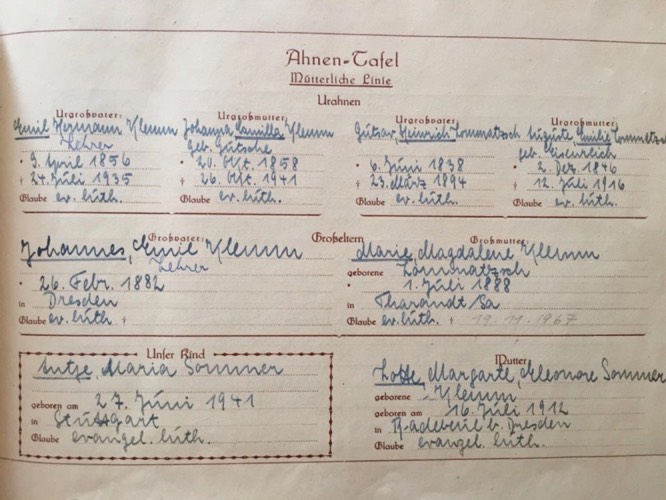 Ahnen-Tafel
Mütterliche Linie
Urahnen
Urgroßvater:
Emil Hermann Klemm
Lehrer
* 9. April 1856
† 24. Juli 1935
Glaube ev. luth.
Urgroßmutter:
Johanna Camilla Klemm
geb. Gütsche
* 20. Okt. 1858
† 26. Okt. 1941
Glaube ev. luth.
Urgroßvater:
Gustav, Heinrich Lommatzsch
* 6. Juni 1838
† 23. März 1894
Glaube ev. luth.
Urgroßmutter:
Auguste, Emilie Lommatzsch
geb.
* 2. Dez. 1846
† 12. Juli 1916
Glaube ev. luth.
Großeltern
Großvater:
Johannes, Emil Klemm
Lehrer
* 26. Febr. 1882
in Dresden
Glaube ev. luth. †
Großmutter:
Marie, Magdalene Klemm
geborene Lommatzsch
* 1. Juli 1888
in Tharandt Sa
Glaube ev. luth. † 19.11.1967
Unser Kind
Antje, Maria Sommer
geboren am 27. Juni 1941
in Stuttgart
Glaube evangel. luth.
Mutter
Lotte, Margarte, Eleonore Sommer
geborene Klemm
geboren am 16. Juli 1912
in Radebeul b. Dresden
Glaube evangel. luth.